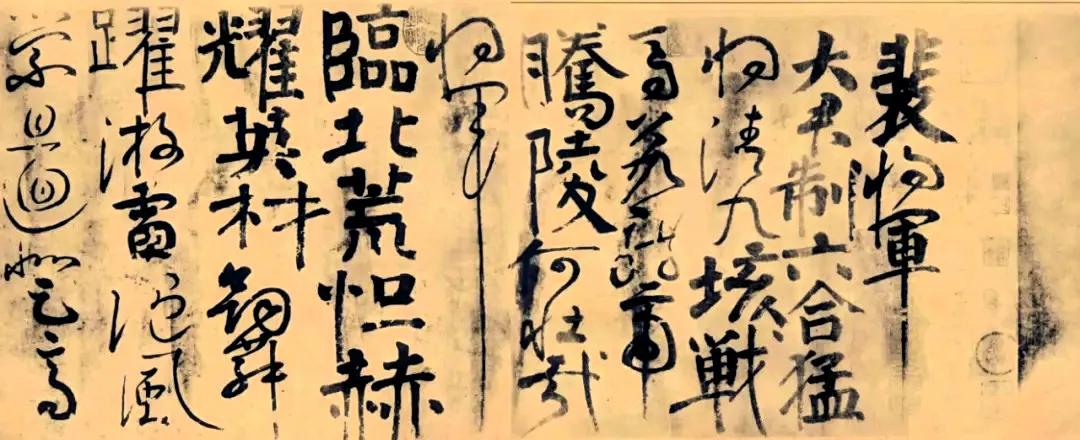 裴將軍
大君制六合猛
將清九垓戰
馬若龍虎
騰陵何壯哉
將軍
臨北荒恒赫
耀英材劒舞
躍游雷隨風
縈且迴登高